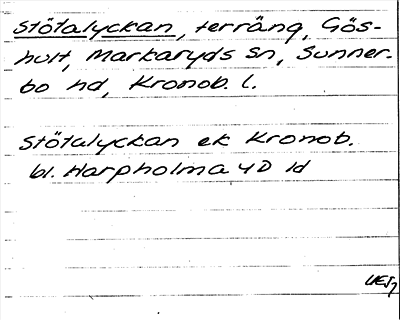 Stötalyckan, terräng, Gös-
hult, Markaryds sn, Sunner-
bo hd, Kronob. l.
Stötalyckan ek Kronob.
bl. Harpholma 4D 1d